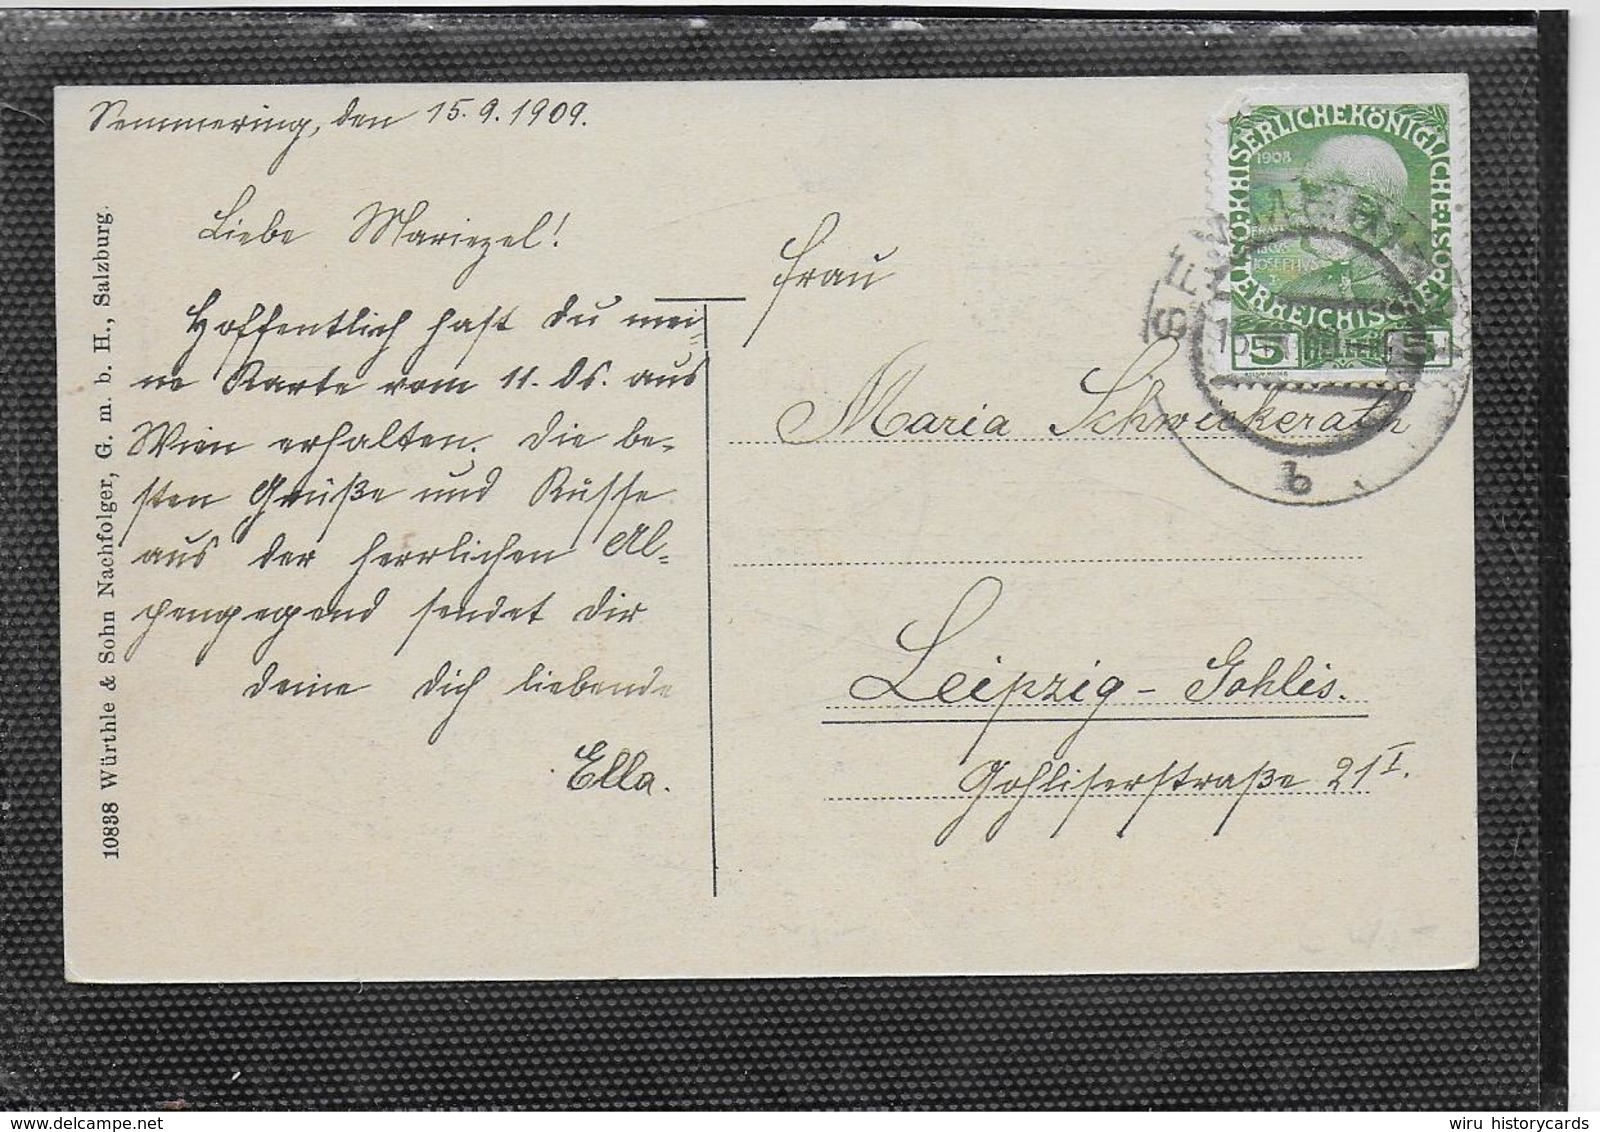 Semmering, den 15.9.1909.
Liebe Mariezel!
Hoffentlich hast Du mei-
ne Karte vom 11. ds. aus
Wien erhalten. Die be-
sten Grüße und Küsse
aus der herrlichen Al-
pengegend sendet Dir
Deine Dich liebende
Ella.
10838 Würthle & Sohn Nachfolger, G. m. b. H., Salzburg.
KAISERLICHE KÖNIGLICHE ÖSTERREICHISCHE POST
1908
FRANC
IOSEPHVS I
5 HELLER 5
SEMMERING
b
Frau
Maria Schwickerath
Leipzig - Gohlis.
Gohliserstraße 21 I.
wiru historycards